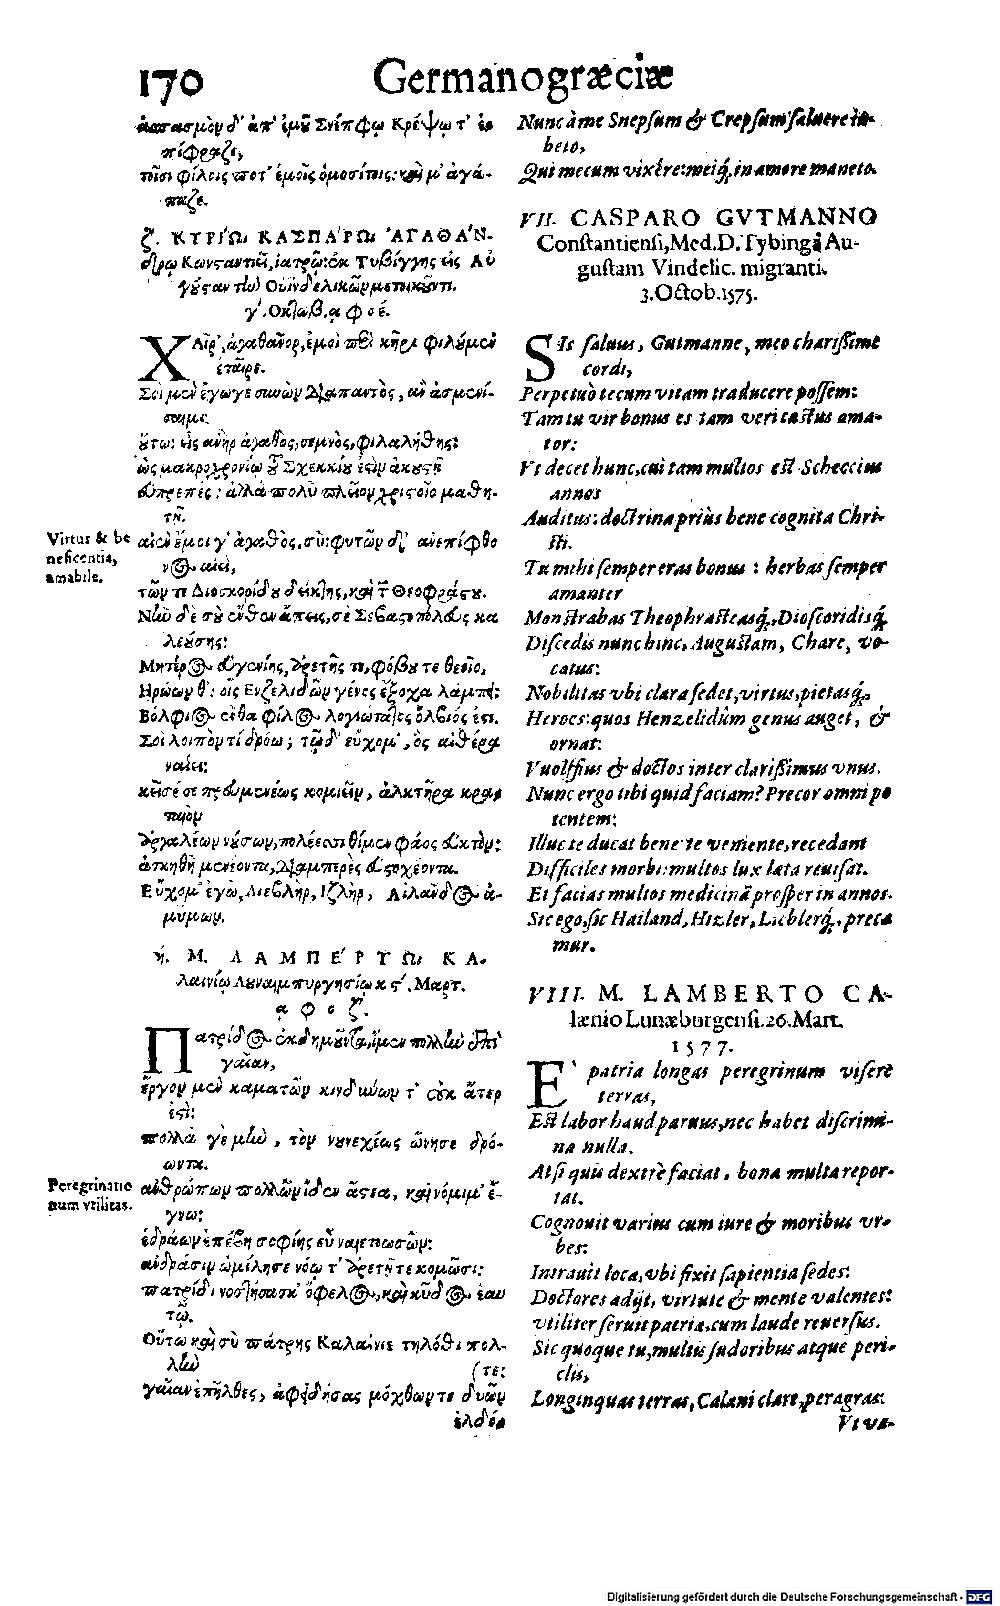 170 Germanogræciæ
ἀασπασμὸν δ' ἀπ' ἐμοῦ Σνίπφῳ Κρέψῳ τ' ἐν
πίφραζε,
τοῖσι φίλοις ποτ' ἐμοῖς ὁμοσίτοις: καὶ μ' ἀγά-
παζε.
ζ. ΚΥΡΙΩ ΚΑΣΠΑΡΩ ἈΓΑΘΑΝ-
δρῳ Κωνσταντιεῖ, ἰατρῷ: ἐκ Τυβίγγης εἰς Αὐ
γούσταν τὴν Οὐινδελικῶν μετοικοῦντι.
γ'. Οκτωβ. α φ ο έ.
ΧΑῖρ', ἀγαθᾶνορ, ἐμοὶ περὶ κῆρι φιλούμεν
ἑταῖρε.
Σοὶ μὲν ἔγωγε συνὼν διαπαντὸς, ἂν ἀσμενί-
σαιμι
οὕτω: εἷς ἀνὴρ ἀγαθὸς, σεμνὸς, φιλαλήθης:
ὡς μακροχρονίῳ τοῦ Σχεκκίου ἐστὶν ἀκουστῇ
εὐπρεπές: ἀλλὰ πολὺ πλεῖον χριστοῖο μαθη-
τῇ.
Virtus & be
neficentia,
amabile.
αἰὲν ἔμοιγ' ἀγαθὸς, σύ: φυτῶν δ' ἀνεπίφθο
νος αἰεὶ,
τῶν τε Διοσκορίδου δείκτης, καὶ τοῦ Θεοφράστου.
Νῦν δὲ σὺ ἔνθεν ἄπεις, σὲ Σεβαστοπόλεως κα
λεούσης:
Μητέρος εὐγενίης, ἀρετῆς τε, φόβου τε θεοῖο,
Ηρώων θ': οἷς Ενζελιδῶν γένος ἔξοχα λάμπει:
Βόλφιος ἔνθα φίλος λογιώτατος ὄλβιός ἐστι.
Σοὶ λοιπὸν τί δρόω; τῷδ' εὔχομ', ὃς αἰθέρα
ναίει:
κεῖσέ σε πρευμενέως κομιεῖν, ἀλκτῆρα κραι
πνὸν
ἀργαλέων νούσων, πολέεσσι θέμεν φάος εὐκτόν:
ἀσκηθῆ μενέοντα, διαμπερὲς εὐτυχέοντα.
Εὔχομ' ἐγὼ, Λιεβλὴρ, Ἰζλὴρ, Αἵλανδος ἀ-
μύμων.
ή. Μ. ΛΑΜΠΕΡΤΩ ΚΑ-
λαινίῳ Λουναιμπυργησίῳ κ ϛ'. Μαρτ.
α φ ο ζ.
Πατρίδος ἐκδημοῦντα, ἴμεν πολλὴν ἐπὶ
γαῖαν,
ἔργον μὲν καματῶν κινδύνων τ' οὐκ ἄτερ
ἐστί:
πολλὰ γε μὴν, τὸν νουνεχέως ὤνησε δρό-
ωντα.
Peregrinatio
num vtilitas.
ἀνθρώπων πολλῶν ἴδεν ἄστεα, καὶ νόμιμ' ἔ-
γνω:
ἑδράων ἐπέβη σοφίης εὖ ναιεταωσῶν:
ἀνδράσιν ὡμίλησε νόῳ τ' ἀρετῇ τε κομῶσι:
πατρίδι νοστήσασκ' ὄφελος, καὶ κῦδος ἑαυ
τῷ.
Οὕτω καὶ σὺ πάτρης Καλαίνιε τηλόθι πολ-
λὴν (τε:
γαῖαν ἐπῆλθες, ἀφειδήσας μόχθων τε δυῶν
ἐλδό
Nunc à me Snepfum & Crepfum saluere iu-
beto,
Qui mecum vixêre: meiq́, in amore maneto.
VII. CASPARO GVTMANNO
Constantiensi, Med. D. Tybinga Au-
gustam Vindelic. migranti.
3. Octob. 1575.
SIs saluus, Gutmanne, meo charissime
cordi,
Perpetuò tecum vitam traducere possem:
Tam tu vir bonus es tam veri castus ama-
tor:
Vt decet hunc, cui tam multos est Scheccius
annos
Auditus: doctrina priùs bene cognita Chri-
sti.
Tu mihi semper eras bonus: herbas semper
amanter
Monstrabas Theophrasteasq́, Dioscoridisq́.
Discedis nunc hinc, Augustam, Chare, vo-
catus:
Nobilitas vbi clara sedet, virtus, pietasq́,
Heroes: quos Henzelidûm genus auget, &
ornat:
Vuolffius & doctos inter clarissimus vnus.
Nunc ergo tibi quid faciam? Precor omni po
tentem:
Illuc te ducat bene te veniente, recedant
Difficiles morbi: multos lux læta reuisat.
Et facias multos medicinā prosper in annos.
Sic ego, sic Hailand, Hizler, Lieblerq́, preca
mur.
VIII. M. LAMBERTO CA-
lænio Lunæburgensi. 26. Mart.
1577.
E' patria longas peregrinum visere
terras,
Est labor haud paruus, nec habet discrimi-
na nulla.
At si quis dextrè faciat, bona multa repor-
tat.
Cognouit varias cum iure & moribus vr-
bes:
Intrauit loca, vbi fixit sapientia sedes:
Doctores adijt, virtute & mente valentes:
vtiliter seruit patriæ, cum laude reuersus.
Sic quoque tu, multis sudoribus atque peri-
clis,
Longinquas terras, Calani clare, peragras:
Vt va-
Digitalisierung gefördert durch die Deutsche Forschungsgemeinschaft - DFG